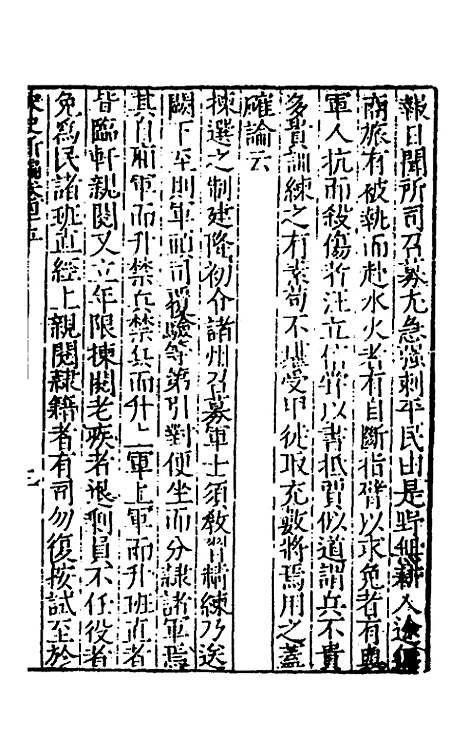 報日聞所司召募尤急強刺平民由是野無耕人途無
商旅有被執而赴水火者有自斷指臂以求免者有與
軍人抗而殺傷者汪立信嘗以書抵賈似道謂兵不貴
多貴訓練之有素苟不堪受甲徒取充數將焉用之蓋
確論云
揀選之制建隆初令諸州召募軍士須敎習精練乃送
闕下至則軍頭司覆驗等第引對便坐而分隷諸軍焉
其自廂軍而升禁兵禁兵而升上軍上軍而升班直者
皆臨軒親閱又立年限揀閱老疾者退剩員不任役者
免爲民諸班直經上親閱隷籍者有司勿復按試至於
宋史新編卷